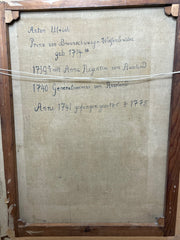 Anton Ulrich
Prinz von Braunschweig-Wolfenbüttel
geb. 1714
1739 mit Anna Regentin von Rußld
1740 Generalissimus von Russland
Anno 1741 gefangen gesetzt 1775